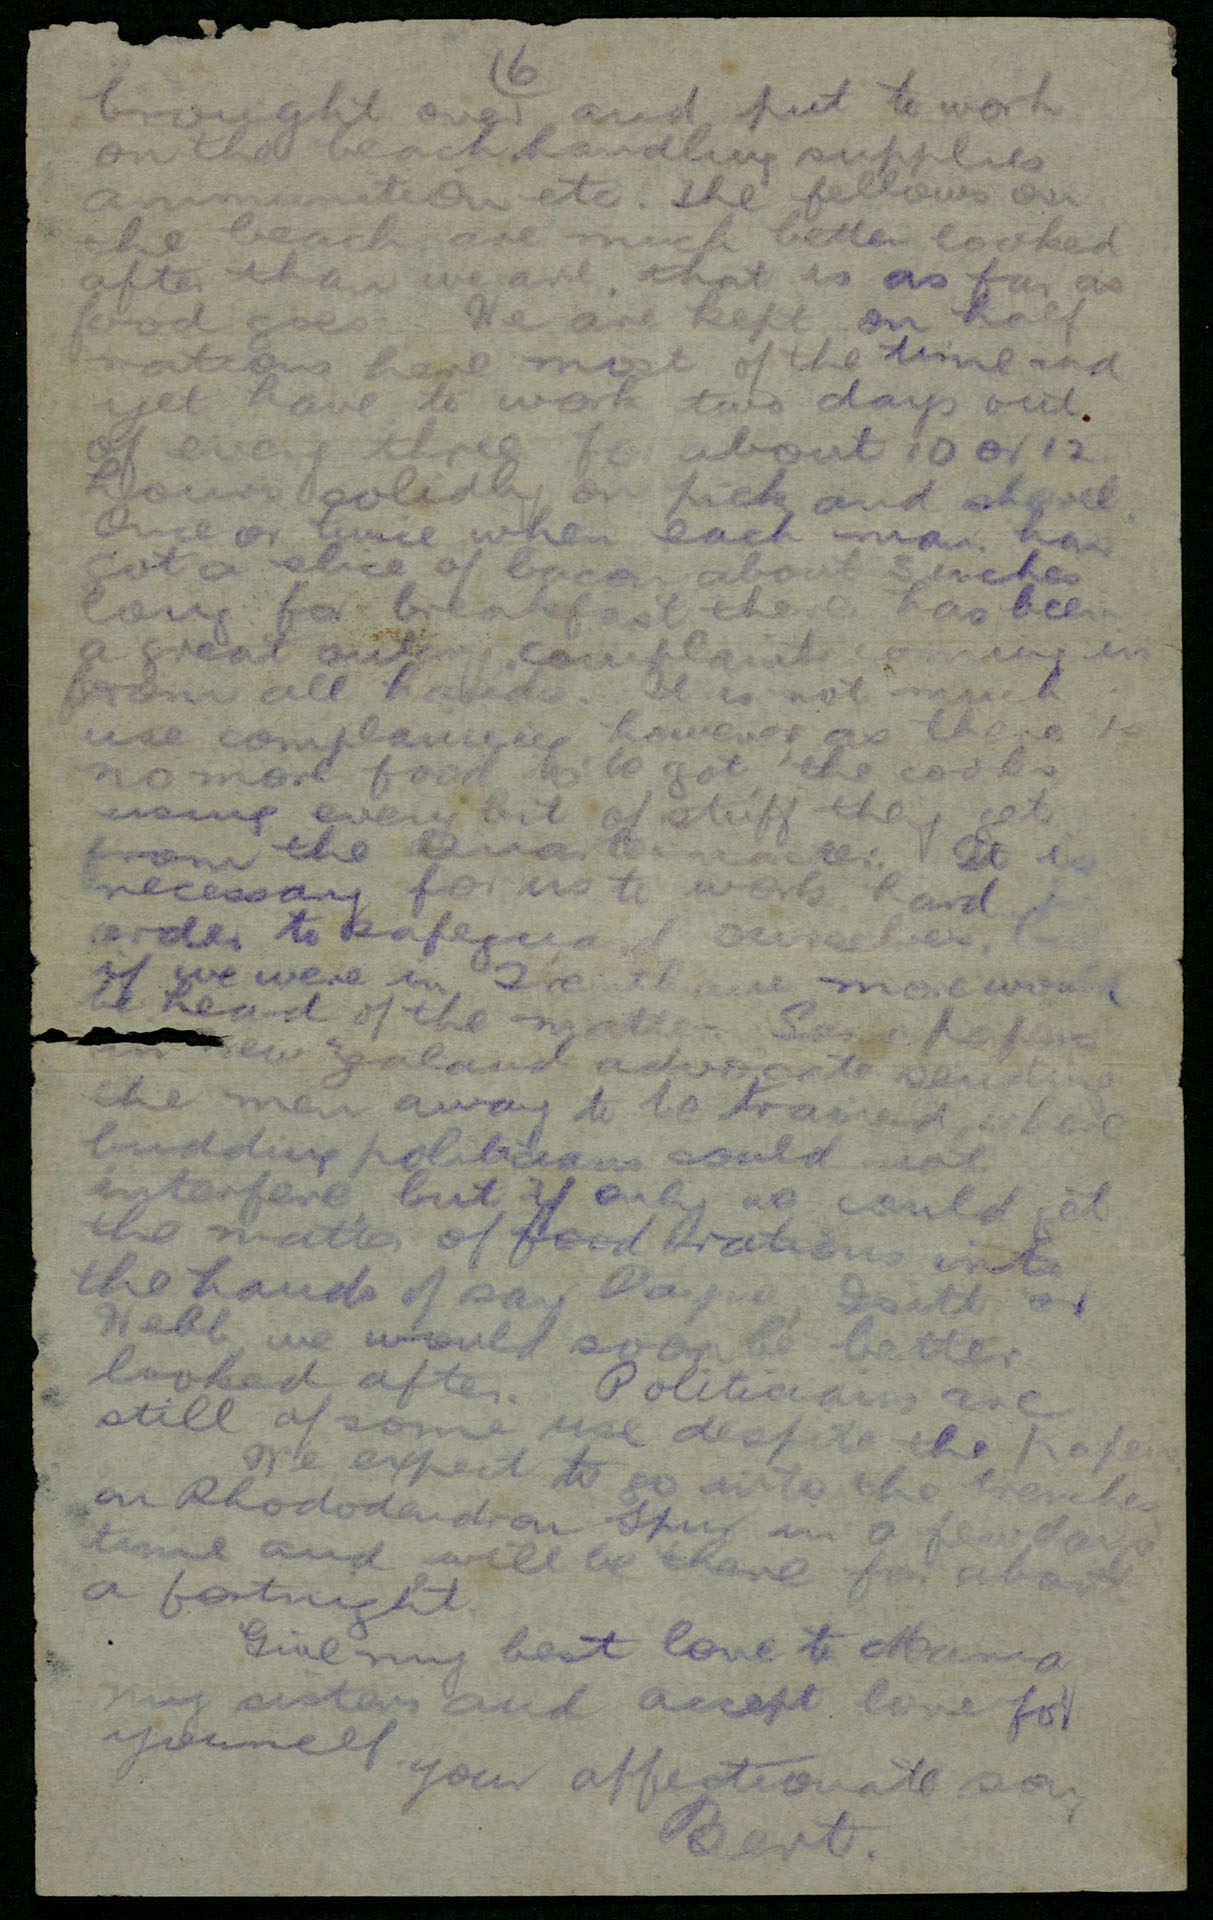 (6
brought over and put to work
on the beach handling supplies
ammunition etc. The fellows on
the beach are much better looked
after than we are, that is as far as
food goes. We are kept on half
rations here most of the time and
yet have to work two days out
of every three for about 10 or 12
hours solidly on pick and shovel.
Once or twice when each man has
got a slice of bacon about 3 inches
long for breakfast there has been
a great outcry, complaints coming in
from all hands. It is not much
use complaining however as there is
no more food to be got, the cooks
using every bit of stuff they get
from the Quartermaster. It is
necessary for us to work hard in
order to safeguard ourselves,
if we were in Trentham more would
be heard of the matter. Some papers
in New Zealand advocate sending
the men away to be trained where
budding politicians could not
interfere, but if only we could get
the matter of food rations into
the hands of say Payne, Isitt or
Webb we would soon be better
looked after. Politicians are
still of some use despite the papers.
We expect to go into the trenches
on Rhododendron Spur in a few days
time and will be there for about
a fortnight.
Give my best love to Mama
my sisters and accept love for
yourself.
your affectionate son,
Bert.